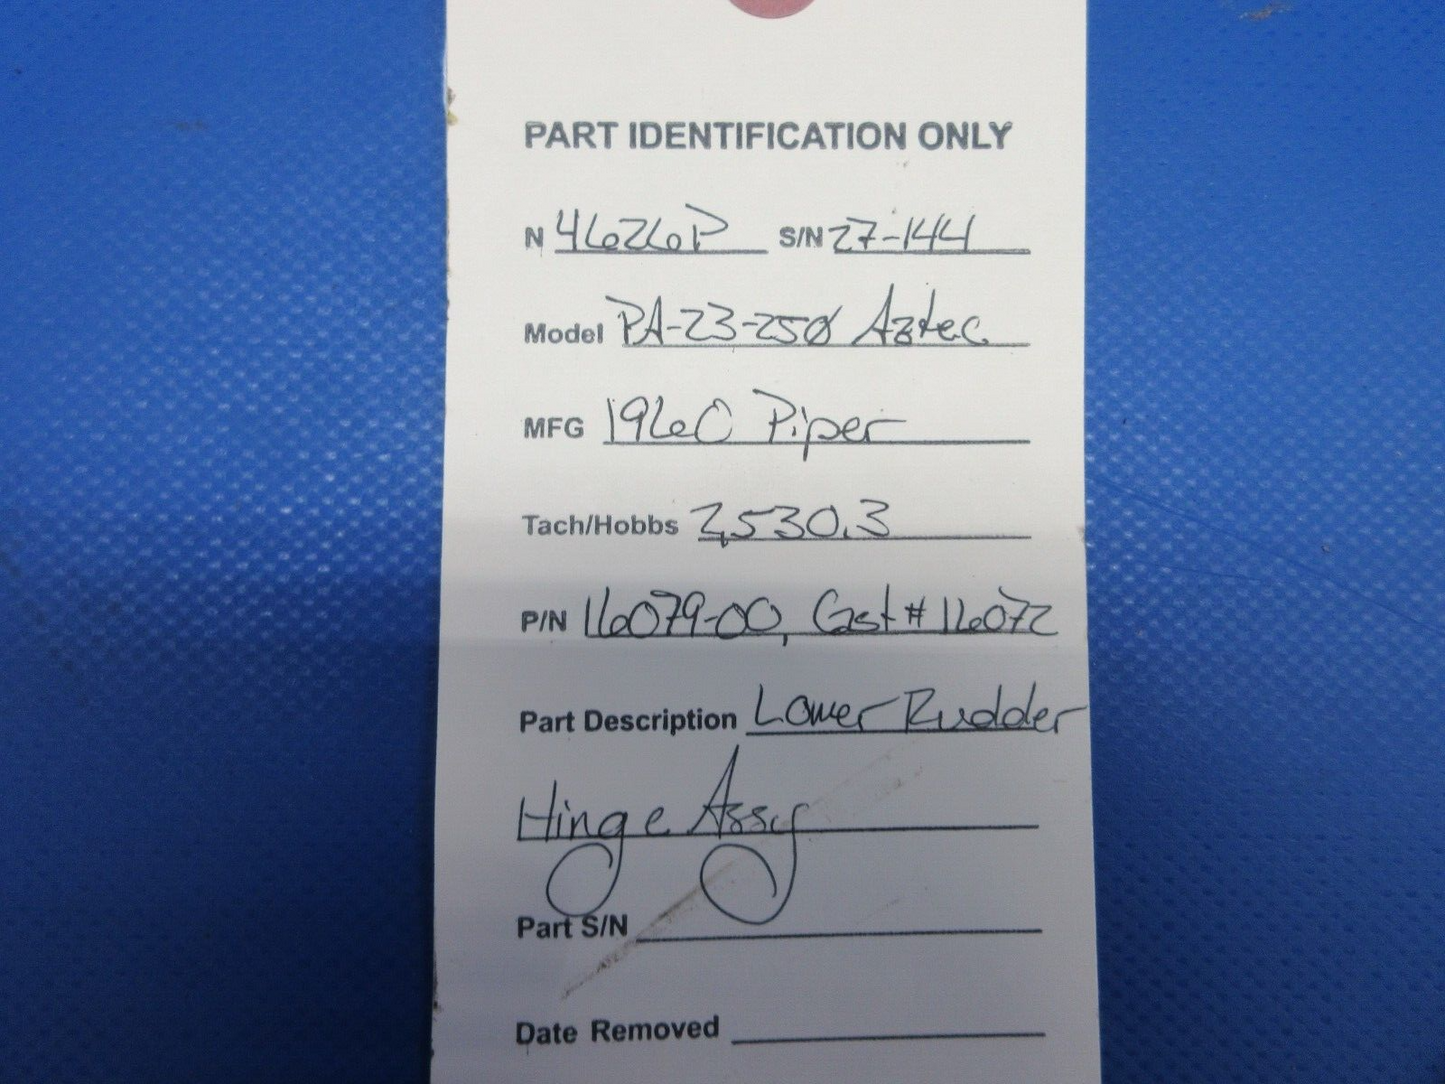 PART IDENTIFICATION ONLY
N 4626P S/N 27-144
Model PA-23-250 Aztec
MFG 1960 Piper
Tach/Hobbs 2,530.3
P/N 16079-00, Cast # 16072
Part Description Lower Rudder
Hinge Assy
Part S/N
Date Removed